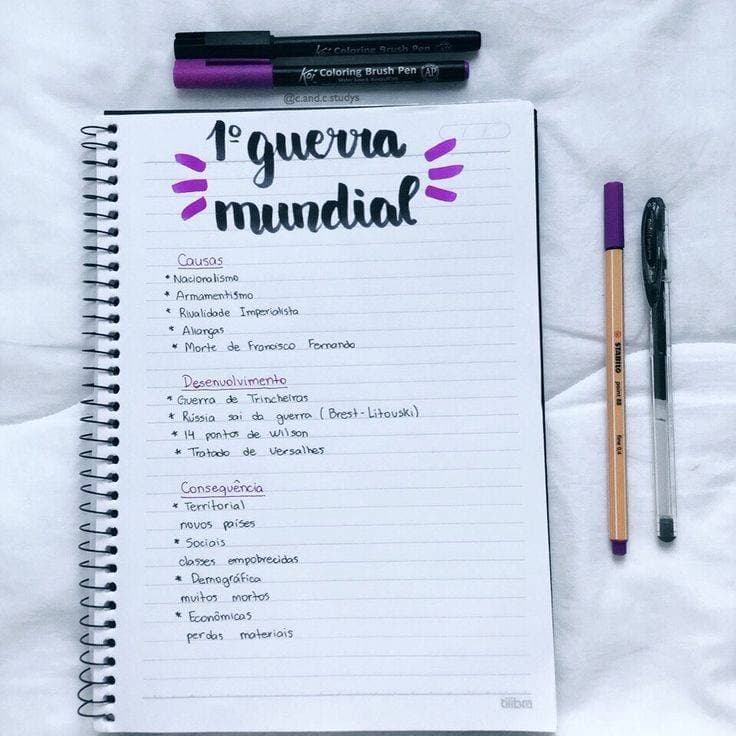 Koi Coloring Brush Pen AP
Koi Coloring Brush Pen AP
@c.and.c.studys
1º guerra
mundial
Causas
* Nacionalismo
* Armamentismo
* Rivalidade Imperialista
* Alianças
* Morte de Francisco Fernando
Desenvolvimento
* Guerra de Trincheiras
* Rússia sai da guerra (Brest-Litouski)
* 14 pontos de Wilson
* Tratado de Versalhes
Consequência
* Territorial
novos países
* Sociais
classes empobrecidas
* Demográfica
muitos mortos
* Econômicas
perdas materiais
tilibra
STABILO point 88 fine 0,4